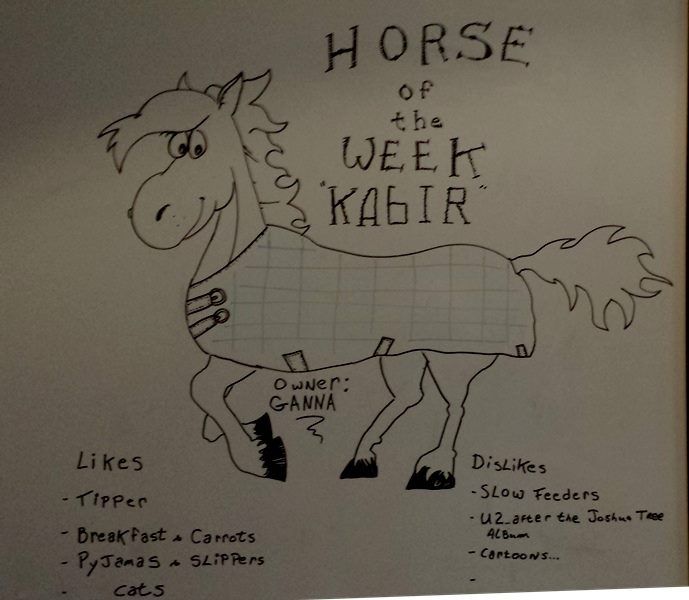 HORSE
of
the
WEEK
"KAbIR"
OWNer:
GANNA
Likes
- TIPPer
- BreakFast & Carrots
- PyJamas & SLIPPers
- Cats
DisLikes
- SLow Feeders
- U2_after the Joshua Tree
ALBum
- Cartoons...
-